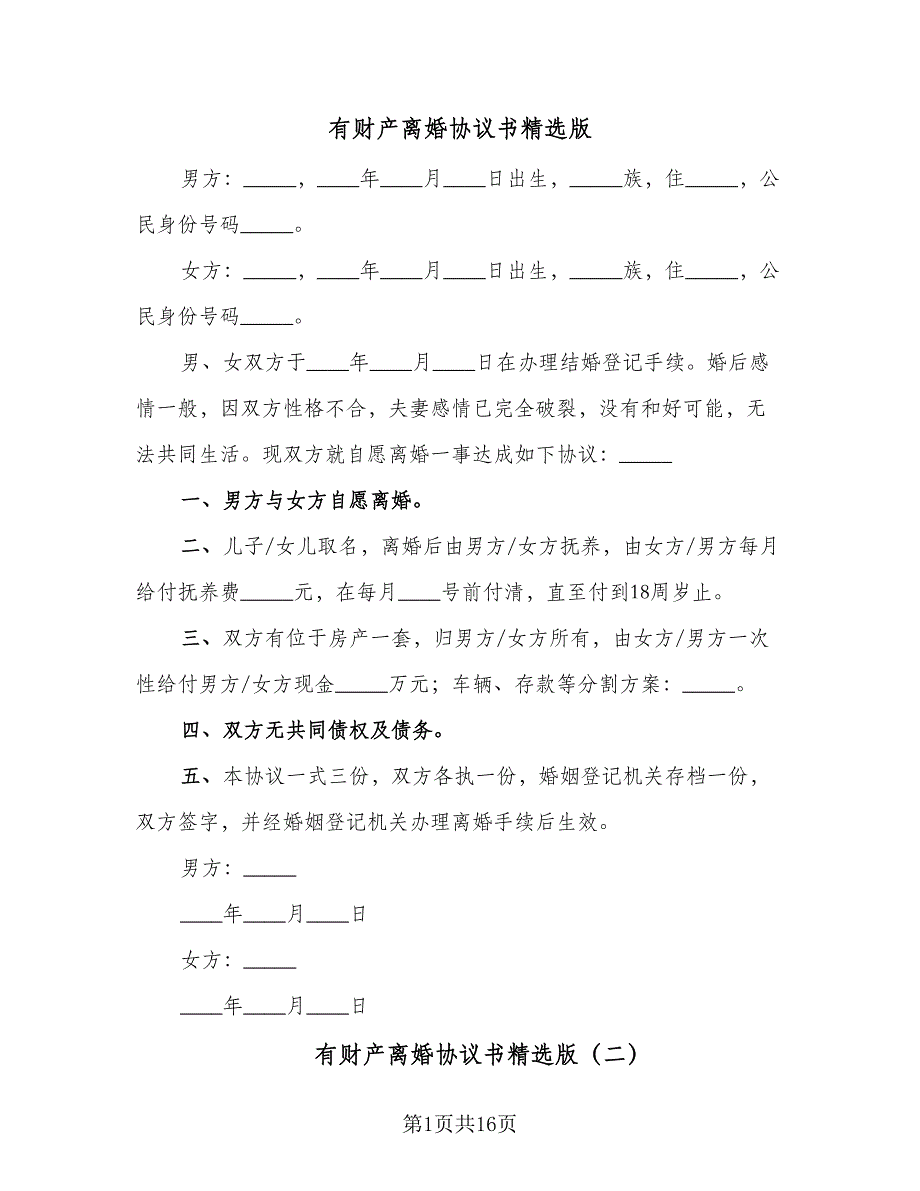 有财产离婚协议书精选版
男方：_____，____年____月____日出生，_____族，住_____，公
民身份号码_____。
女方：_____，____年____月____日出生，_____族，住_____，公
民身份号码_____。
男、女双方于____年____月____日在办理结婚登记手续。婚后感
情一般，因双方性格不合，夫妻感情已完全破裂，没有和好可能，无
法共同生活。现双方就自愿离婚一事达成如下协议：_____
一、男方与女方自愿离婚。
二、儿子/女儿取名，离婚后由男方/女方抚养，由女方/男方每月
给付抚养费_____元，在每月____号前付清，直至付到18周岁止。
三、双方有位于房产一套，归男方/女方所有，由女方/男方一次
性给付男方/女方现金_____万元；车辆、存款等分割方案：_____。
四、双方无共同债权及债务。
五、本协议一式三份，双方各执一份，婚姻登记机关存档一份，
双方签字，并经婚姻登记机关办理离婚手续后生效。
男方：_____
____年____月____日
女方：_____
____年____月____日
有财产离婚协议书精选版（二）
第1页共16页